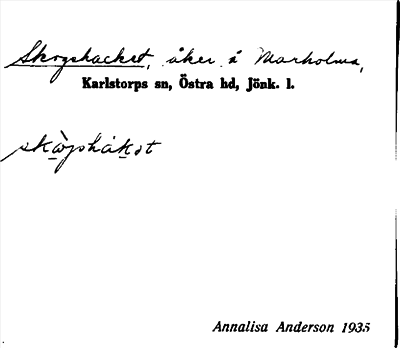 Skogshacket, åker å Marholma,
Karlstorps sn, Östra hd, Jönk. l.
skògshàkət
Annalisa Anderson 1935